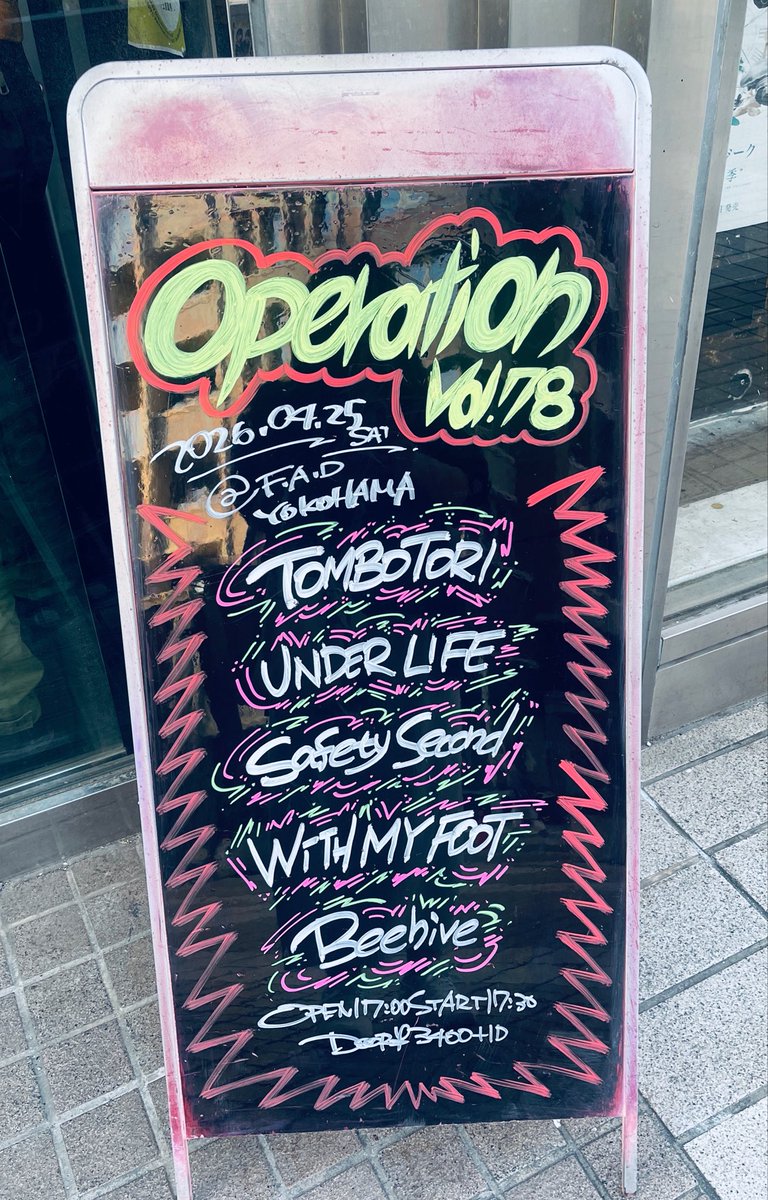 Operation
Vol.78
2026.04.25
SAT
@F.A.D
YOKOHAMA
TOMBOTORI
UNDER LIFE
Safety Second
WITH MY FOOT
Beehive
OPEN17:00START17:30
Door¥3400+1D
ーク
季
発売